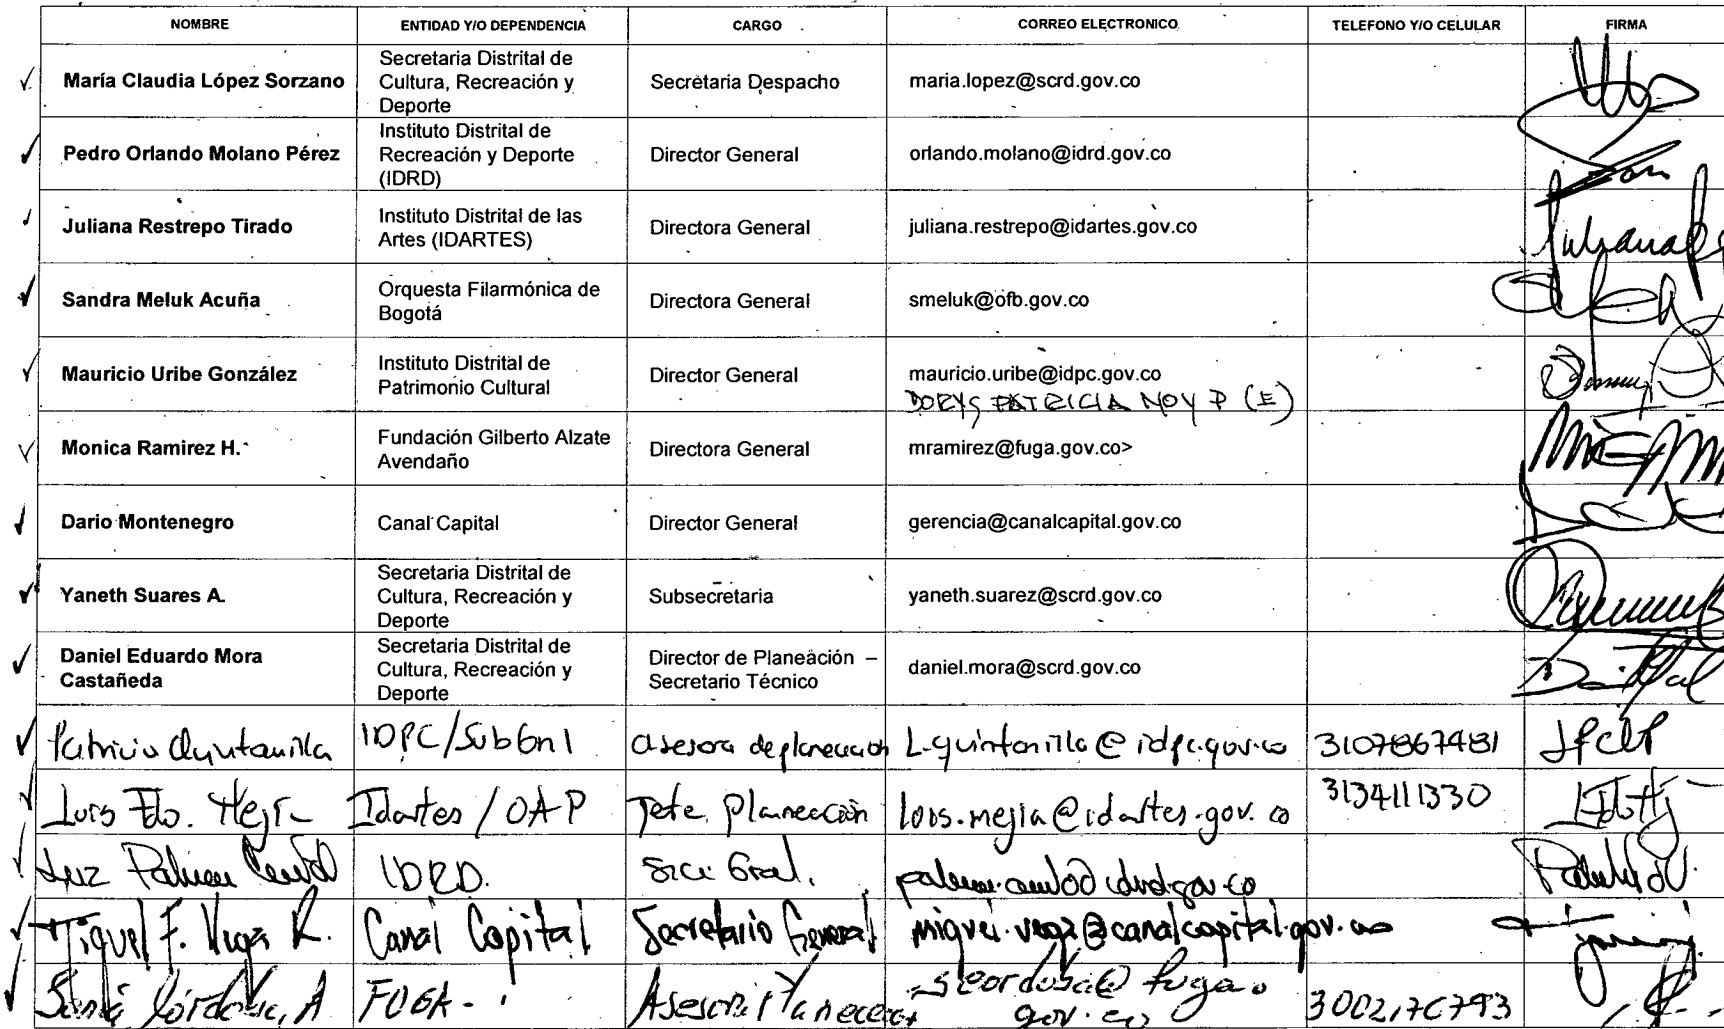 NOMBRE ENTIDAD Y/O DEPENDENCIA CARGO CORREO ELECTRONICO TELEFONO Y/O CELULAR FIRMA
María Claudia López Sorzano Secretaria Distrital de Cultura, Recreación y Deporte Secretaria Despacho maria.lopez@scrd.gov.co
Pedro Orlando Molano Pérez Instituto Distrital de Recreación y Deporte (IDRD) Director General orlando.molano@idrd.gov.co
Juliana Restrepo Tirado Instituto Distrital de las Artes (IDARTES) Directora General juliana.restrepo@idartes.gov.co
Sandra Meluk Acuña Orquesta Filarmónica de Bogotá Directora General smeluk@ofb.gov.co
Mauricio Uribe González Instituto Distrital de Patrimonio Cultural Director General mauricio.uribe@idpc.gov.co
DORYS PATRICIA NOY P (E)
Monica Ramirez H. Fundación Gilberto Alzate Avendaño Directora General mramirez@fuga.gov.co>
Dario Montenegro Canal Capital Director General gerencia@canalcapital.gov.co
Yaneth Suares A. Secretaria Distrital de Cultura, Recreación y Deporte Subsecretaria yaneth.suarez@scrd.gov.co
Daniel Eduardo Mora Castañeda Secretaria Distrital de Cultura, Recreación y Deporte Director de Planeación – Secretario Técnico daniel.mora@scrd.gov.co
Patricia Quintanilla IDPC/SubGnl asesora de planeacion L.quintanilla@idpc.gov.co 3107867481
Luis Fdo. Mejía Idartes / OAP Jefe Planeación luis.mejia@idartes.gov.co 3134111330
Luz IDRD. Gral.
Miguel F. Vega R. Canal Capital Secretario General miguel.vega@canalcapital.gov.co
Córdoba A FUGA Asesora scordoba@fuga.gov.co